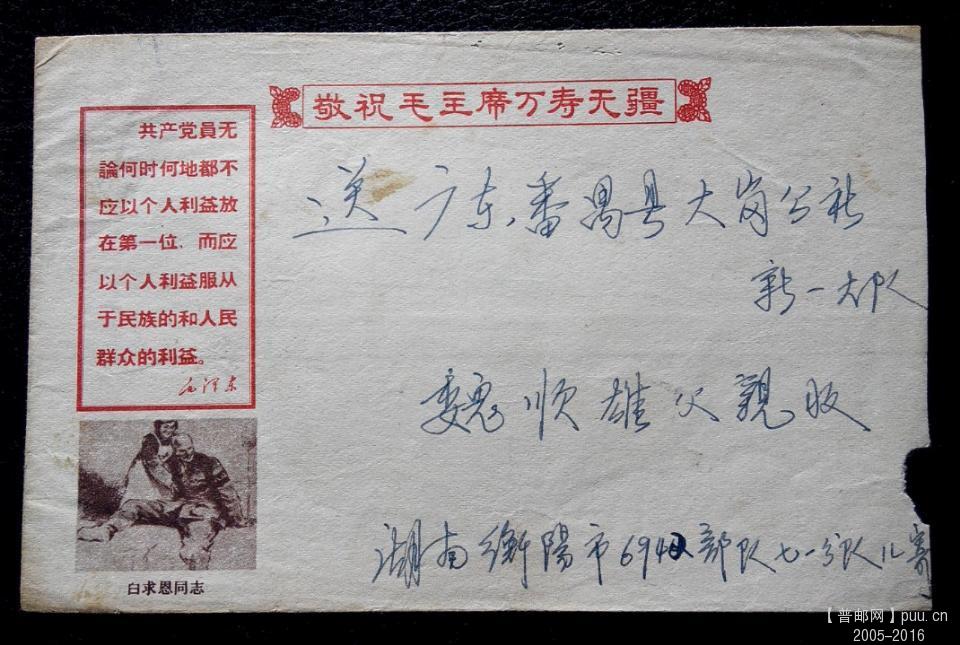 敬祝毛主席万寿无疆
共产党員无
論何时何地都不
应以个人利益放
在第一位,而应
以个人利益服从
于民族的和人民
群众的利益。
毛泽东
白求恩同志
送 广东番禺县大岗公社
新一大队
魏顺雄父親收
湖南衡陽市694部队七一分队儿寄
【普邮网】puu.cn
2005-2016